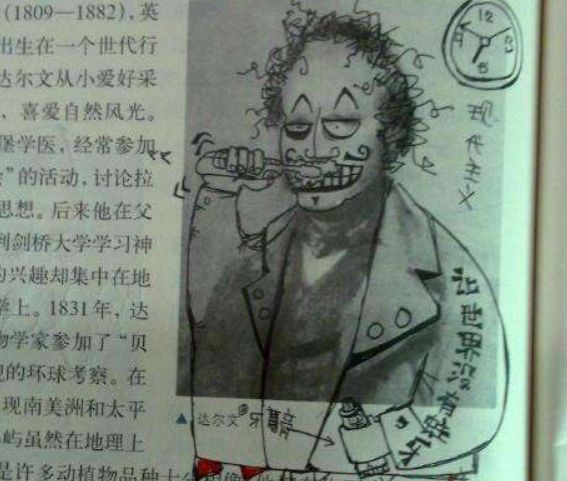 (1809—1882),英
出生在一个世代行
达尔文从小爱好采
,喜爱自然风光。
堡学医,经常参加
”的活动,讨论拉
思想。后来他在父
到剑桥大学学习神
的兴趣却集中在地
学上。1831年,达
物学家参加了“贝
的环球考察。在
现南美洲和太平
屿虽然在地理上
是许多动植物品种十分相像
▲ 达尔文
12
现代主义
让世界没有